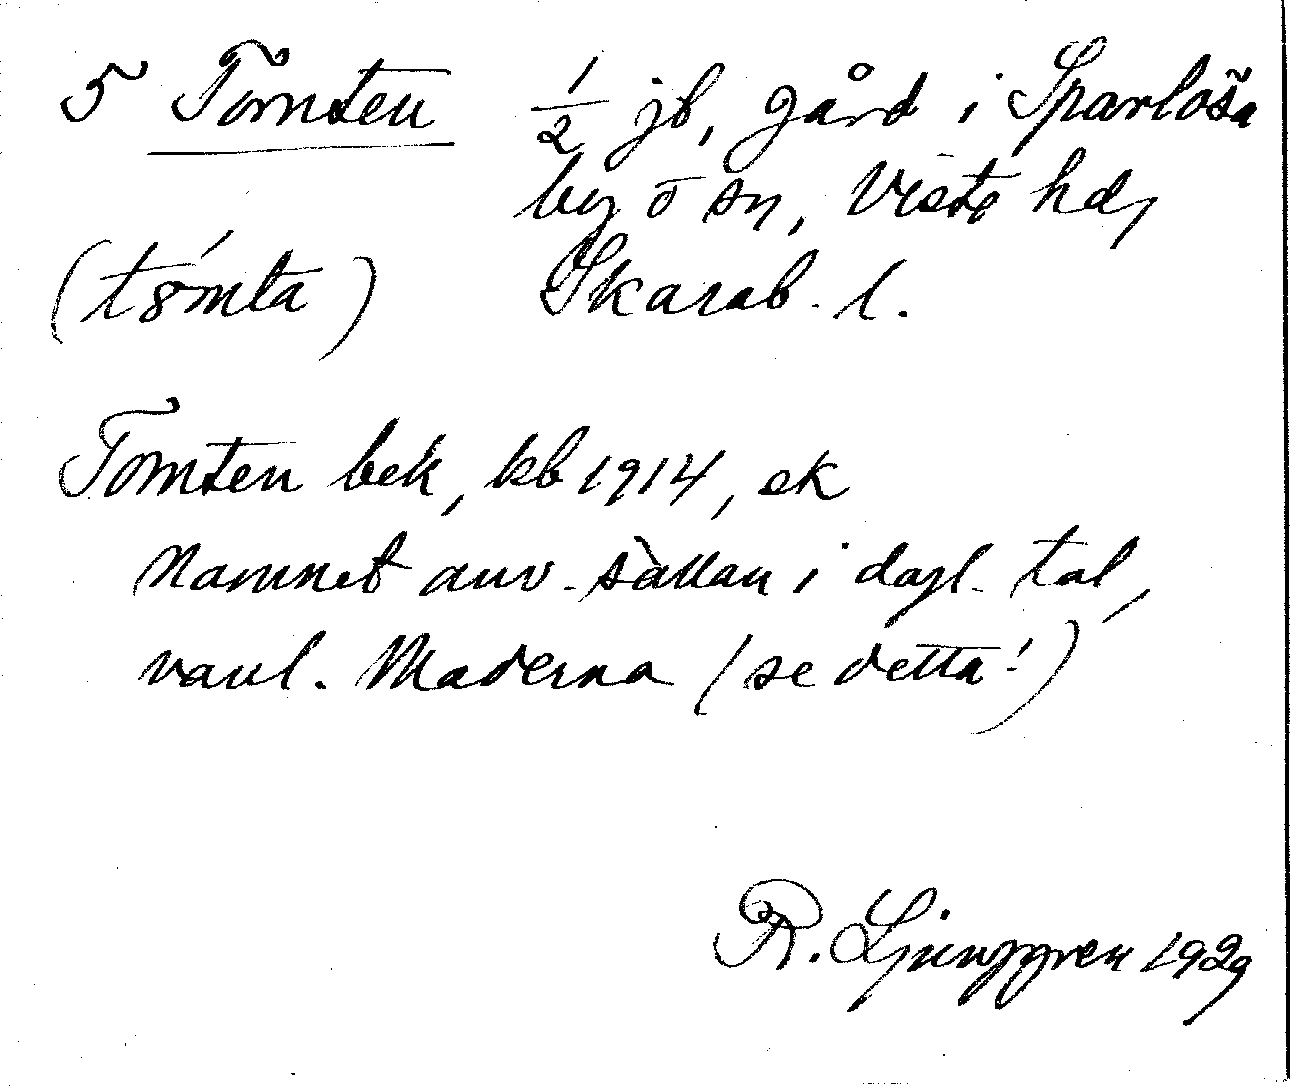 5 Tomten ½ jb, gård i Sparlösa
by o sn, Viste hd,
(tȣ́mta) Skarab. l.
Tomten bek, kb 1914, ek
Namnet anv. sällan i dagl. tal,
vanl. Maderna (se detta!)
R. Ljunggren 1929